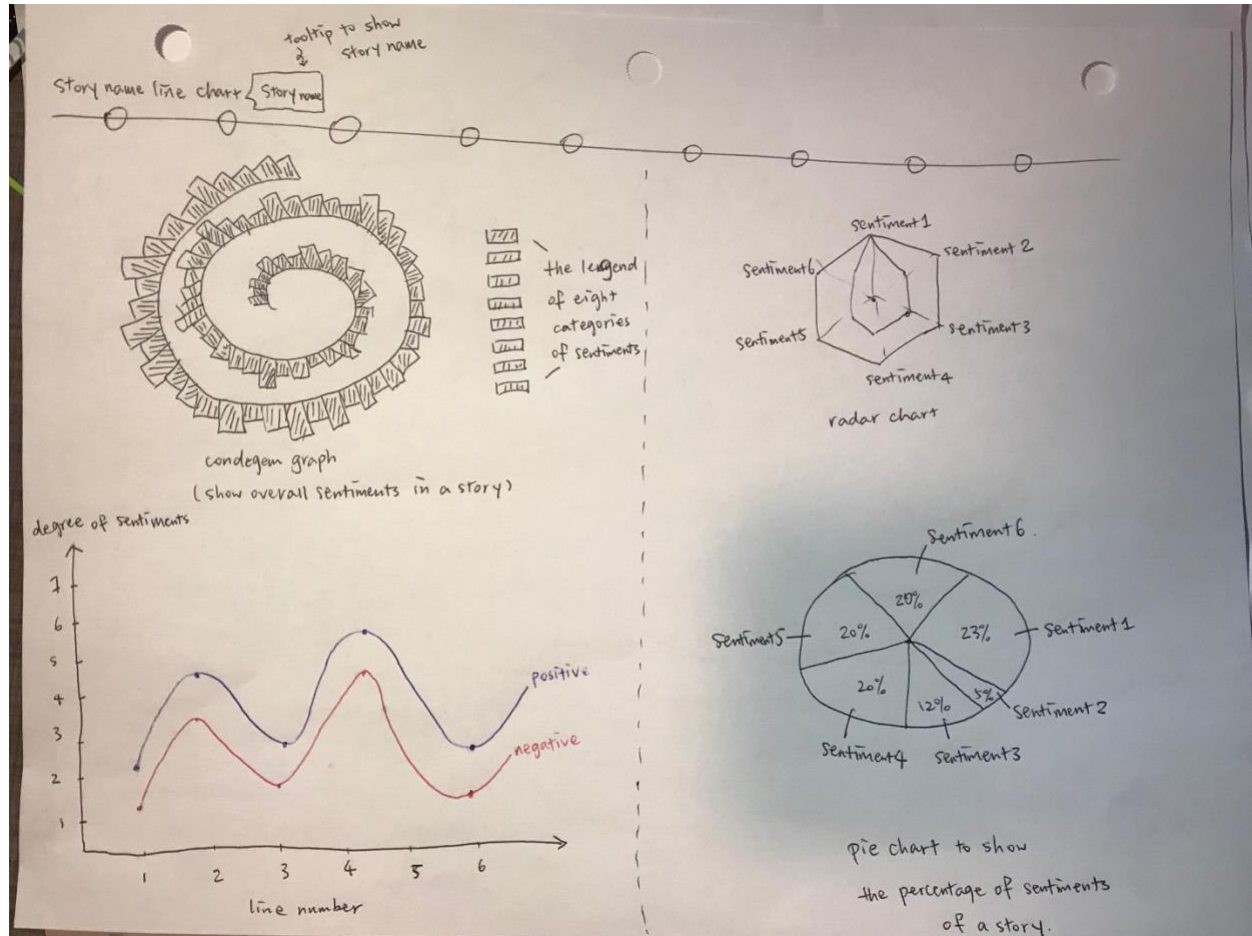 tooltip to show
story name
Story name line chart
Story name
the legend
of eight
categories
of sentiments
condegem graph
(show overall sentiments in a story)
sentiment 1
sentiment 2
sentiment 3
sentiment 4
sentiment 5
sentiment 6
radar chart
degree of sentiments
7
6
5
4
3
2
1
1 2 3 4 5 6
line number
positive
negative
Sentiment 6.
20%
23%
Sentiment 1
5%
Sentiment 2
12%
sentiment 3
20%
Sentiment 4
20%
Sentiment 5
pie chart to show
the percentage of sentiments
of a story.